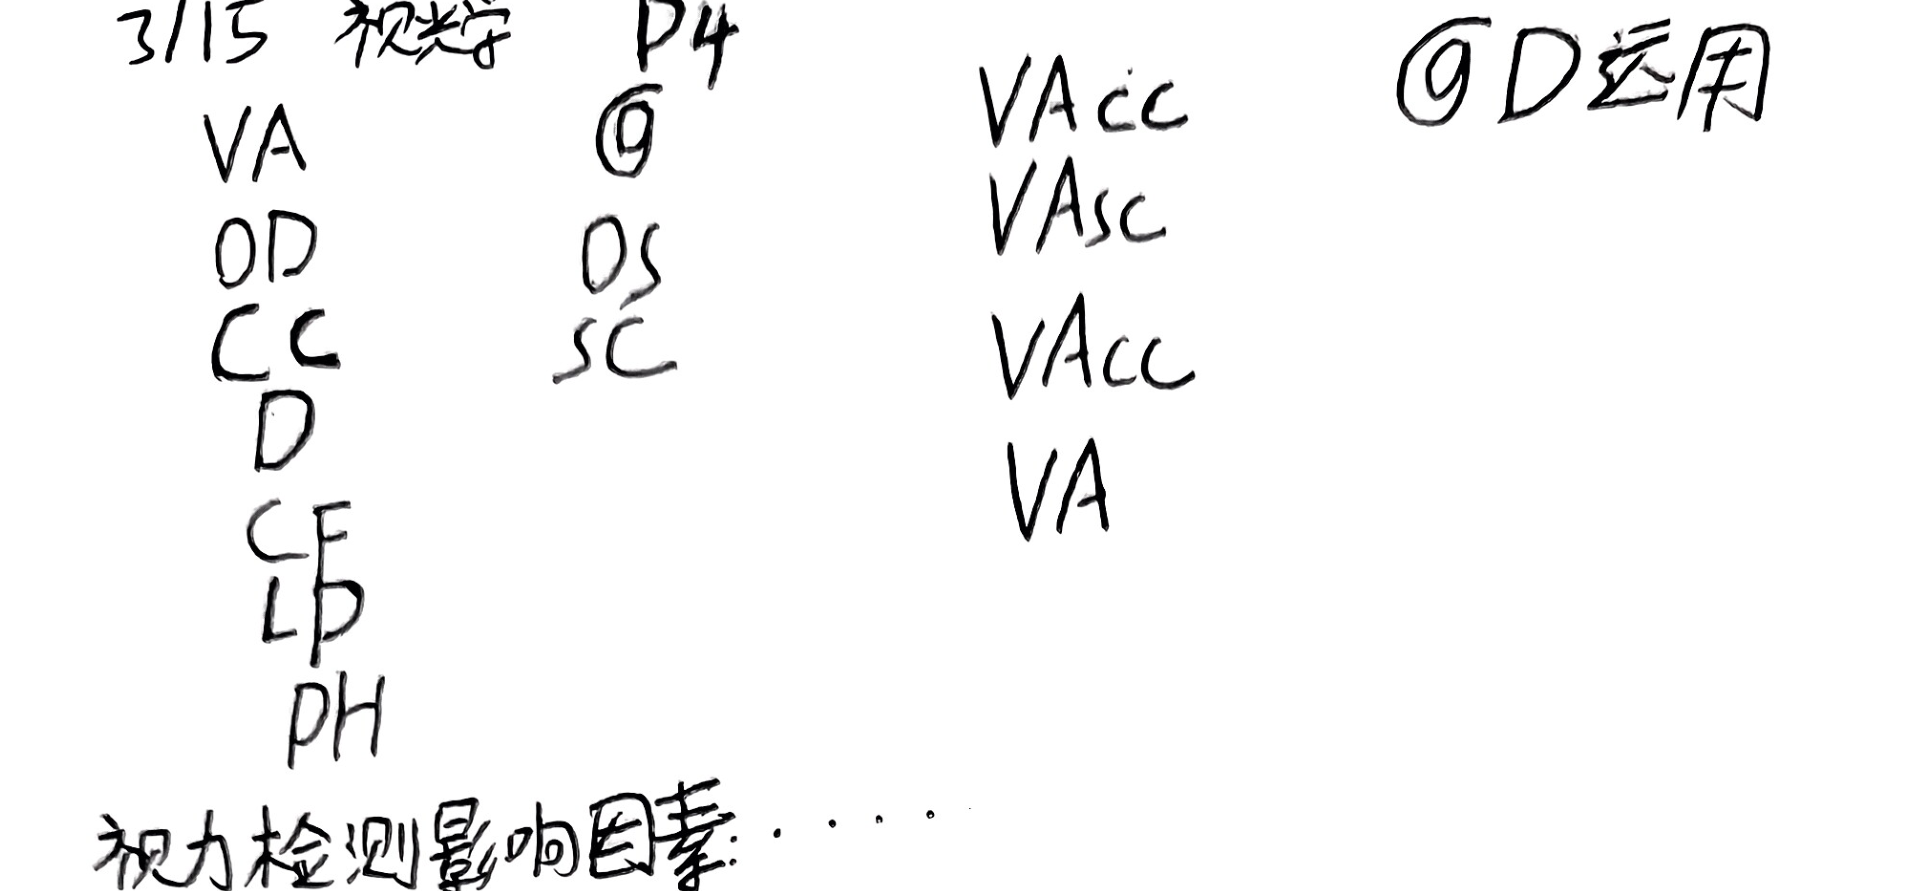 3/15 视光学 P4
VA @
OD OS
CC SC
D
CF
LP
PH
VAcc
VAsc
VAcc
VA
@D运用
视力检测影响因素:.....